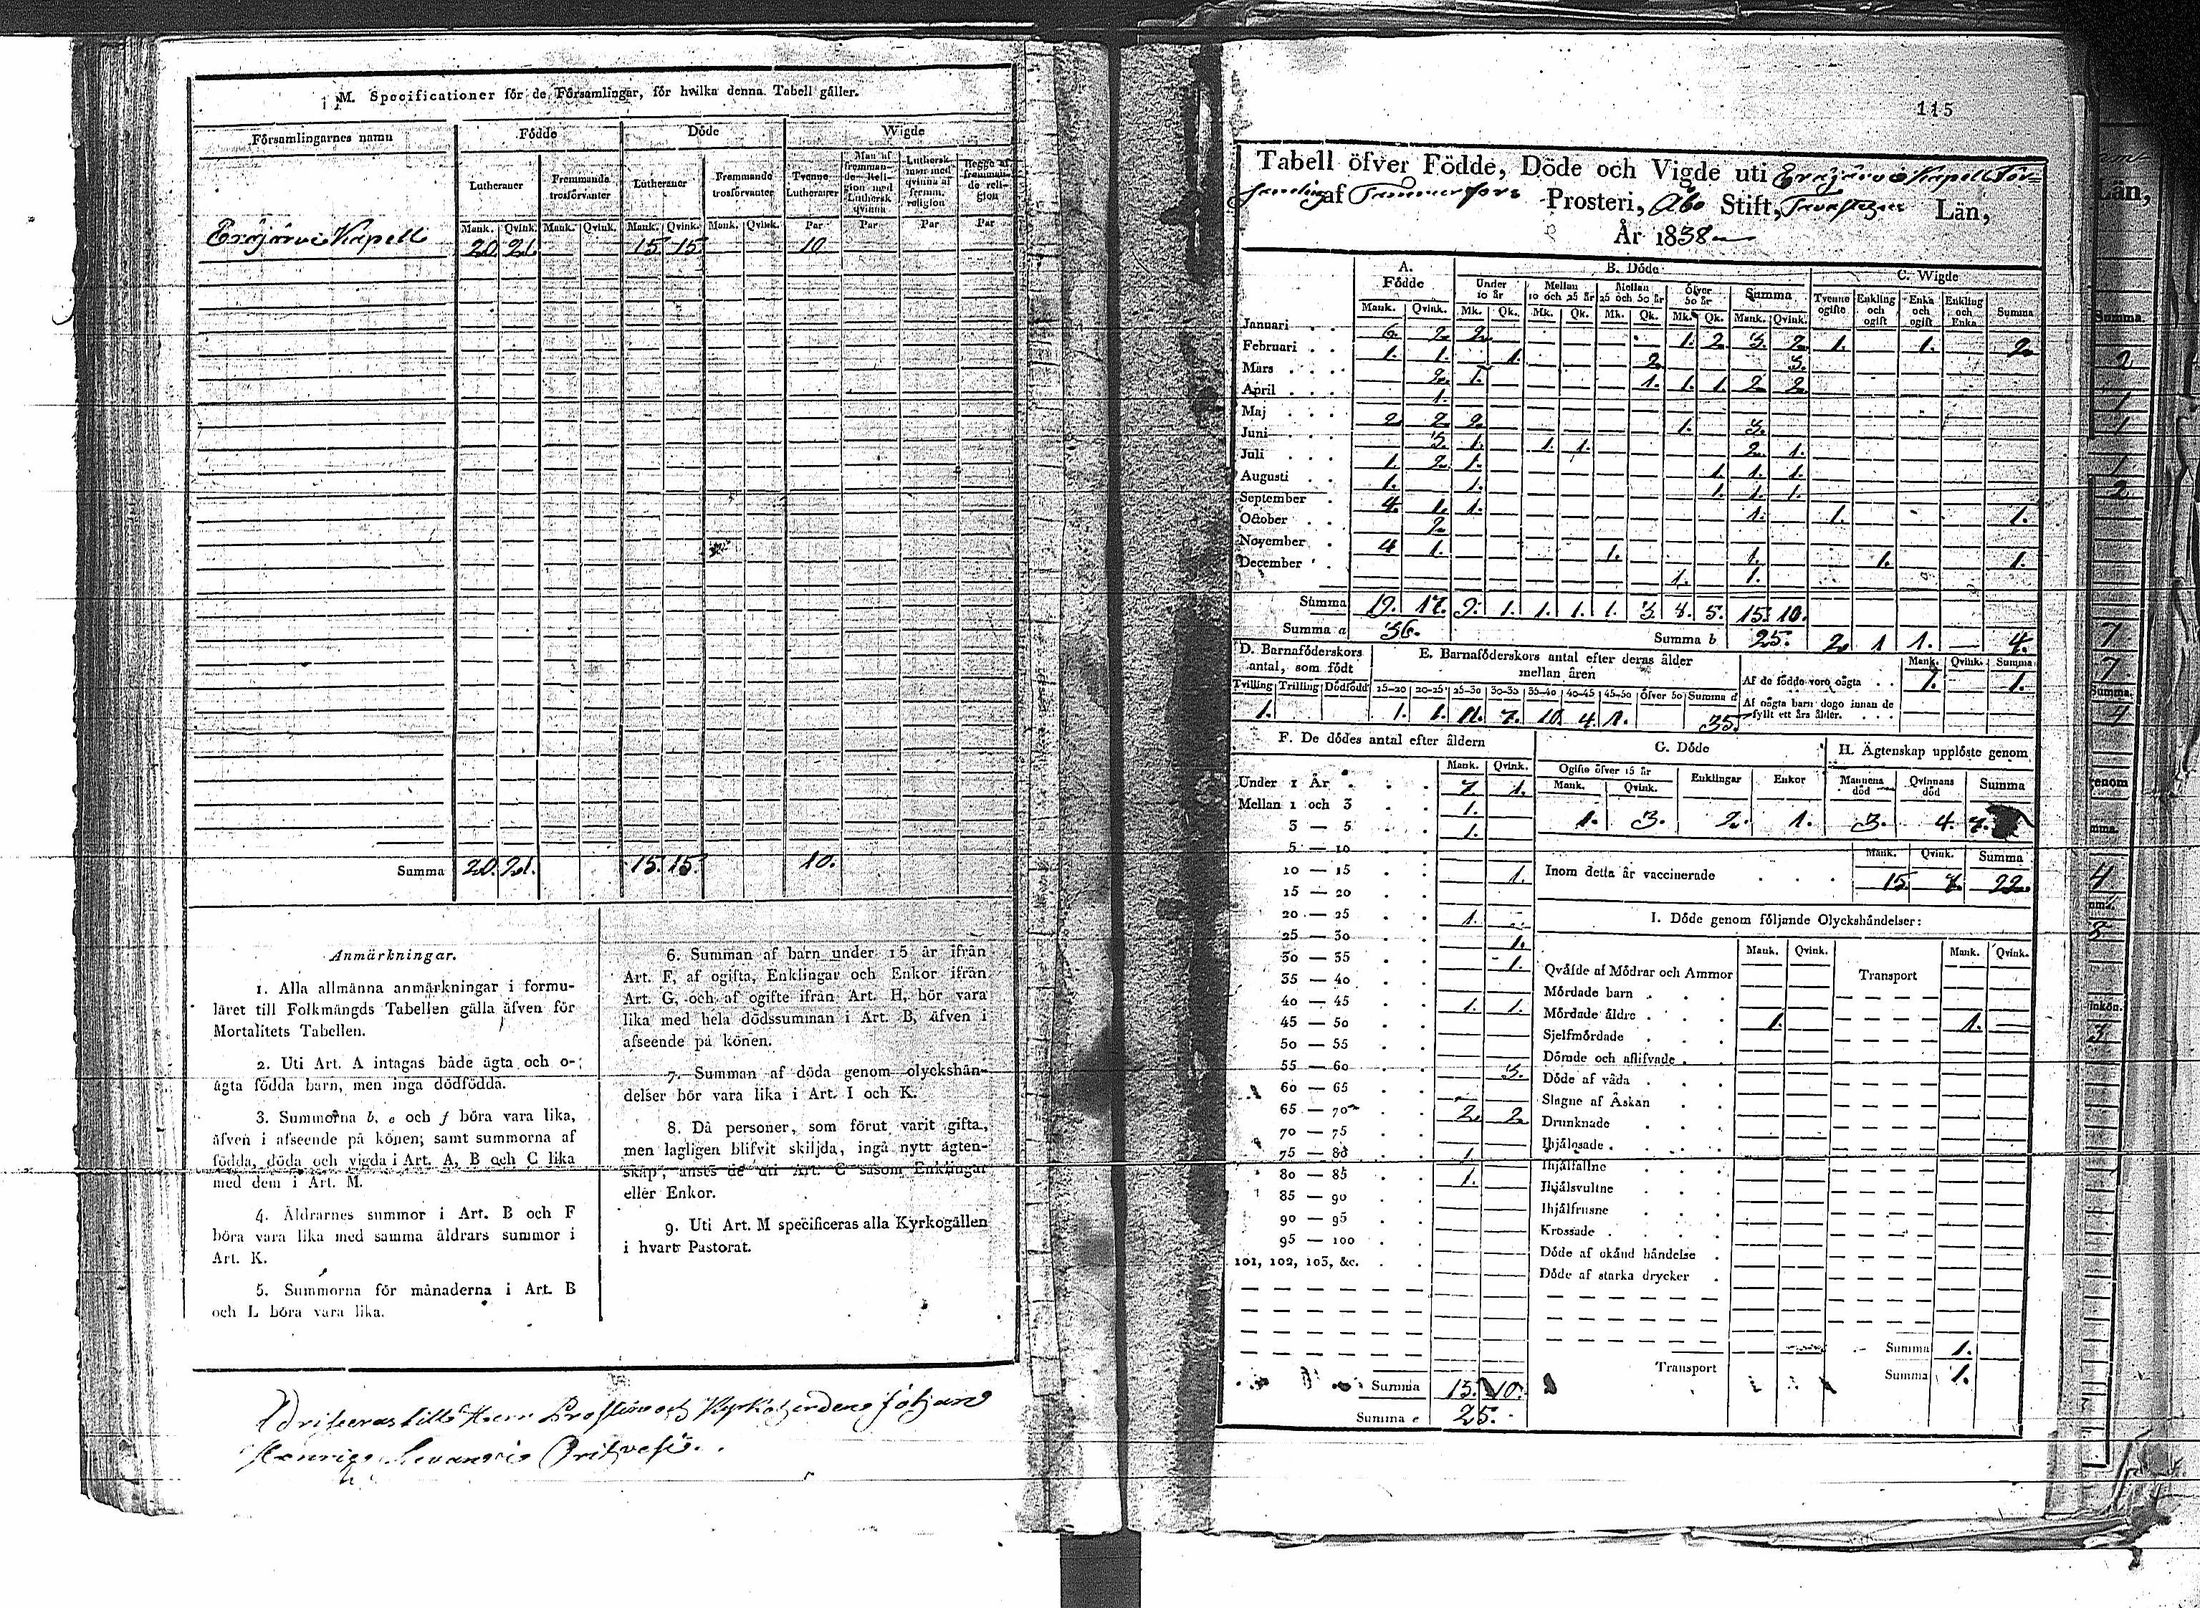 M. Specificationer för de Församlingar, för hvilka denna Tabell gäller.
Församlingarnes namn Födde Döde Wigde
Lutheraner Fremmande trosförvanter Lutheraner Fremmande trosförvanter Tvenne Lutheraner
Mank. Qvink. Mank. Qvink. Mank. Qvink. Mank. Qvink. Par Par Par Par
Eräjärvi Kapell 20 21. 15 15 10
Summa 20. 21. 15. 15. 10.
Anmärkningar.
1. Alla allmänna anmärkningar i formu-
läret till Folkmängds Tabellen gälla äfven för
Mortalitets Tabellen.
2. Uti Art. A intagas både ägta och o-
ägta födda barn, men inga dödfödda.
3. Summorna b, e och f böra vara lika,
äfven i afseende på könen; samt summorna af
födda, döda och vigda i Art. A, B och C lika
med dem i Art. M.
4. Åldrarnes summor i Art. B och F
böra vara lika med samma åldrars summor i
Art. K.
5. Summorna för månaderna i Art. B
och L böra vara lika.
6. Summan af barn under 15 år ifrån
Art. F, af ogifta, Enklingar och Enkor ifrån
Art. G, och af ogifte ifrån Art. H, bör vara
lika med hela dödssumman i Art. B, äfven i
afseende på könen.
7. Summan af döda genom olyckshän-
delser bör vara lika i Art. I och K.
8. Då personer, som förut varit gifta,
men lagligen blifvit skiljda, ingå nytt ägten-
skap, anses de uti Art. C såsom Enklingar
eller Enkor.
9. Uti Art. M specificeras alla Kyrkogällen
i hvart Pastorat.
115
Tabell öfver Födde, Döde och Vigde uti Eräjärvi Kapell För=
samling af Tammerfors Prosteri, Åbo Stift, Tavastehus Län,
År 1838
A. Födde B. Döde C. Wigde
Under 10 år Mellan 10 och 25 år Mellan 25 och 50 år Öfver 50 år Summa Tvenne ogifte Enkling och ogift Enka och ogift Enkling och Enka Summa
Mank. Qvink. Mk. Qk. Mk. Qk. Mk. Qk. Mk. Qk. Mank. Qvink.
Januari 6. 2. 2. 1. 2 3. 2 1. 1. 2.
Februari 1. 1. 1. 2. 3.
Mars 2. 1. 1. 1. 1. 2 2
April 1.
Maj 2. 2. 2. 1. 3.
Juni 3. 1. 1. 1. 2. 1.
Juli 1. 2. 1. 1. 1. 1.
Augusti 1. 1. 1. 1. 1.
September 4. 1. 1. 1. 1. 1.
October 2.
November 4 1. 1. 1. 1. 1.
December 1. 1.
Summa 19. 17. 9. 1. 1. 1. 1. 3. 4. 5. 15. 10.
Summa a 36. Summa b 25. 2. 1 1. — 4.
D. Barnaföderskors antal, som födt
E. Barnaföderskors antal efter deras ålder mellan åren
Mank. Qvink. Summa
Tvilling Trilling Dödfödd 15-20 20-25 25-30 30-35 35-40 40-45 45-50 Öfver 50 Summa d
1. 1. 1. 11. 7. 10. 4. 1. 35.
Af de födde voro oägta 1. 1.
Af oägta barn dogo innan de fyllt ett års ålder.
F. De dödes antal efter åldern
Mank. Qvink.
Under 1 År 7. 1.
Mellan 1 och 3 1.
3 — 5 1.
5 — 10
10 — 15 1.
15 — 20
20 — 25 1.
25 — 30 1.
30 — 35 1.
35 — 40
40 — 45 1. 1.
45 — 50
50 — 55
55 — 60 3.
60 — 65
65 — 70 2. 2.
70 — 75
75 — 80 1.
80 — 85 1.
85 — 90
90 — 95
95 — 100
101, 102, 103, &c.
Summa 15. 10.
Summa e 25.
G. Döde
Ogifte öfver 15 år Enklingar Enkor
Mank. Qvink.
1. 3. 2. 1.
H. Ägtenskap upplöste genom
Mannens död Qvinnans död Summa
3. 4. 7.
Mank. Qvink. Summa
Inom detta år vaccinerade 15. 7. 22.
I. Döde genom följande Olyckshändelser:
Mank. Qvink. Mank. Qvink.
Qväfde af Mödrar och Ammor Transport
Mördade barn
Mördade äldre 1. 1.
Sjelfmördade
Dömde och aflifvade
Döde af våda
Slagne af Åskan
Drunknade
Ihjälosade
Ihjälfallne
Ihjälsvultne
Ihjälfrusne
Krossade
Döde af okänd händelse
Döde af starka drycker
Summa 1.
Transport Summa 1.